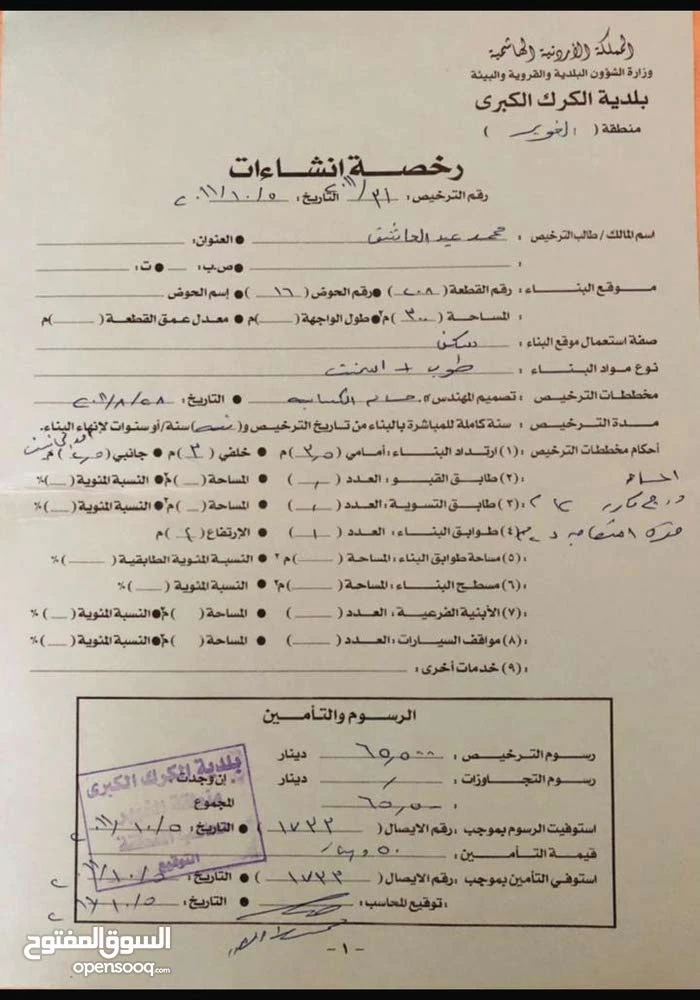 المملكة الأردنية الهاشمية
وزارة الشؤون البلدية والقروية والبيئة
بلدية الكرك الكبرى
منطقة ( الغوير )
رخصة إنشاءات
رقم الترخيص: ٣١/٢٠١١ التاريخ: ٢٠١١/١٠/٥
اسم المالك / طالب الترخيص : محمد عيد العاشق ● العنوان:
: ● ص.ب: ● ت:
موقع البناء : رقم القطعة (٢٠٨) ● رقم الحوض (١٦) ● إسم الحوض
: المساحة (٣٠٠)م٢ ● طول الواجهة ( )م ● معدل عمق القطعة ( )م
صفة استعمال موقع البناء : سكن
نوع مواد البناء : طوب + اسمنت
مخططات الترخيص : تصميم المهندس ● التاريخ : ٢٠١١/٨/٢٨
مدة الترخيص : سنة كاملة للمباشرة بالبناء من تاريخ الترخيص و( ) سنة/أو سنوات لإنهاء البناء.
أحكام مخططات الترخيص : (١) ارتداد البناء : أمامي (٣٫٥)م ● خلفي (٣)م ● جانبي ( )م
: (٢) طابق القبو : العدد ( ) ● المساحة ( )م٢ ● النسبة المئوية ( )%
: (٣) طابق التسوية : العدد ( ) ● المساحة ( )م٢ ● النسبة المئوية ( )%
: (٤) طوابق البناء : العدد (١) ● الإرتفاع ( ) م
: (٥) مساحة طوابق البناء : المساحة ( )م٢ ● النسبة المئوية الطابقية ( )%
: (٦) مسطح البناء : المساحة ( )م٢ ● النسبة المئوية ( )%
: (٧) الأبنية الفرعية : العدد ( ) ● المساحة ( )م٢ ● النسبة المئوية ( )%
: (٨) مواقف السيارات : العدد ( ) ● المساحة ( )م٢ ● النسبة المئوية ( )%
: (٩) خدمات أخرى :
الرسوم والتأمين
رسوم الترخيص : ٦٥٫٥٠٠ دينار
رسوم التجاوزات : / دينار . إن وجدت
: ٦٥٫٥٠٠ المجموع
استوفيت الرسوم بموجب : رقم الايصال ( ١٧٣٢ ) ● التاريخ : ٢٠١١/١٠/٥
قيمة التأمين : ٥٠ دينار
استوفي التأمين بموجب : رقم الايصال ( ١٧٣٣ ) ● التاريخ : ٢٠١١/١٠/٥
: توقيع المحاسب : ● التاريخ : ٢٠١١/١٠/٥
بلدية الكرك الكبرى
منطقة الغوير
التوقيع
-١-
السوق المفتوح
opensooq.com